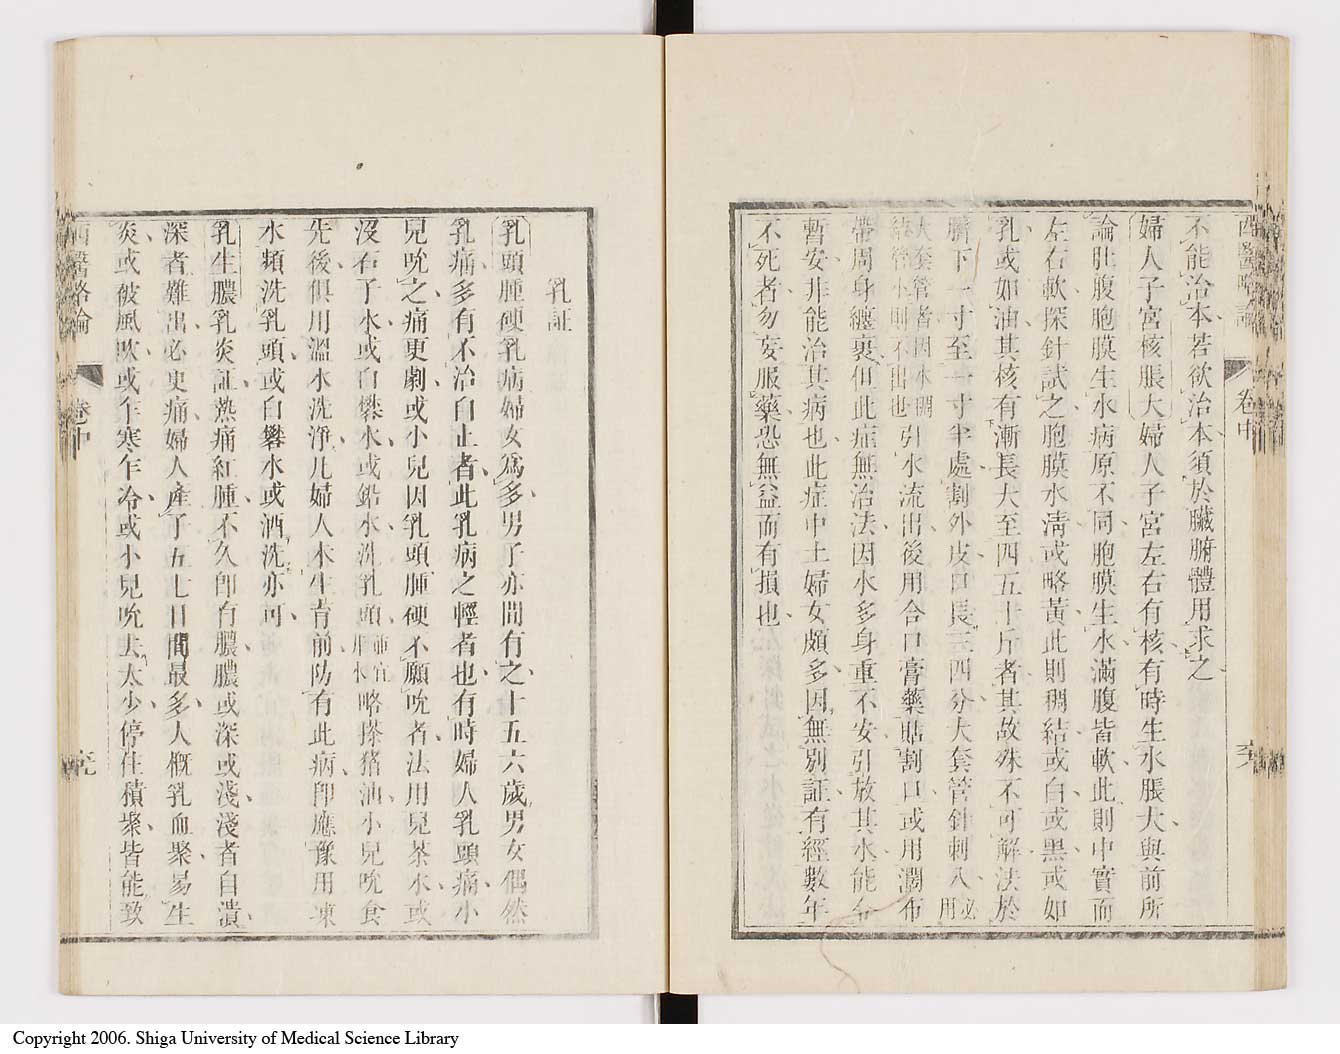 西醫略論 卷中
不能治本若欲治本須於臟腑體用求之
婦人子宮核脹大婦人子宮左右有核有時生水脹大與前所
論肚腹胞膜生水病原不同胞膜生水滿腹皆軟此則中實而
左右軟探針試之胞膜水淸或略黃此則稠結或白或黑或如
乳或如油其核有漸長大至四五十斤者其故殊不可解法於
臍下一寸至一寸半處割外皮口長三四分大套管針刺入必用
大套管者因水稠結管小則不出也引水流出後用合口膏藥貼割口或用濶布
帶周身纏裹但此症無治法因水多身重不安引放其水能令
暫安非能治其病也此症中土婦女頗多因無別証有經數年
不死者勿妄服藥恐無益而有損也
乳証
乳頭腫硬乳病婦女爲多男子亦間有之十五六歲男女偶然
乳痛多有不治自止者此乳病之輕者也有時婦人乳頭痛小
兒吮之痛更劇或小兒因乳頭腫硬不願吮者法用兒茶水或
沒石子水或白礬水或鉛水洗乳頭略搽猪油小兒吮食
先後俱用溫水洗淨凡婦人未生育前防有此病卽應豫用凍
水頻洗乳頭或白礬水或酒洗亦可
乳生膿乳炎証熱痛紅腫不久卽有膿膿或深或淺淺者自潰
深者難出必更痛婦人產了五七日間最多人槪乳血聚易生
炎或被風吹或乍寒乍冷或小兒吮去太少停住積聚皆能致
西醫略論 卷中
Copyright 2006. Shiga University of Medical Science Library